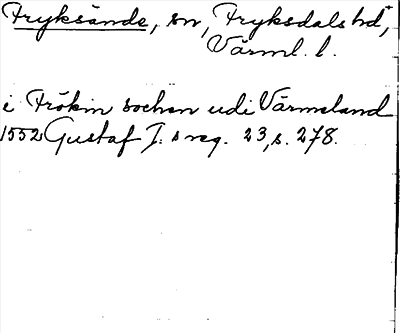 Fryksände, sn, Fryksdals hd,
Värml. l.
i Frökin sochen udi Värmeland
1552 Gustaf I:s reg. 23, s. 278.